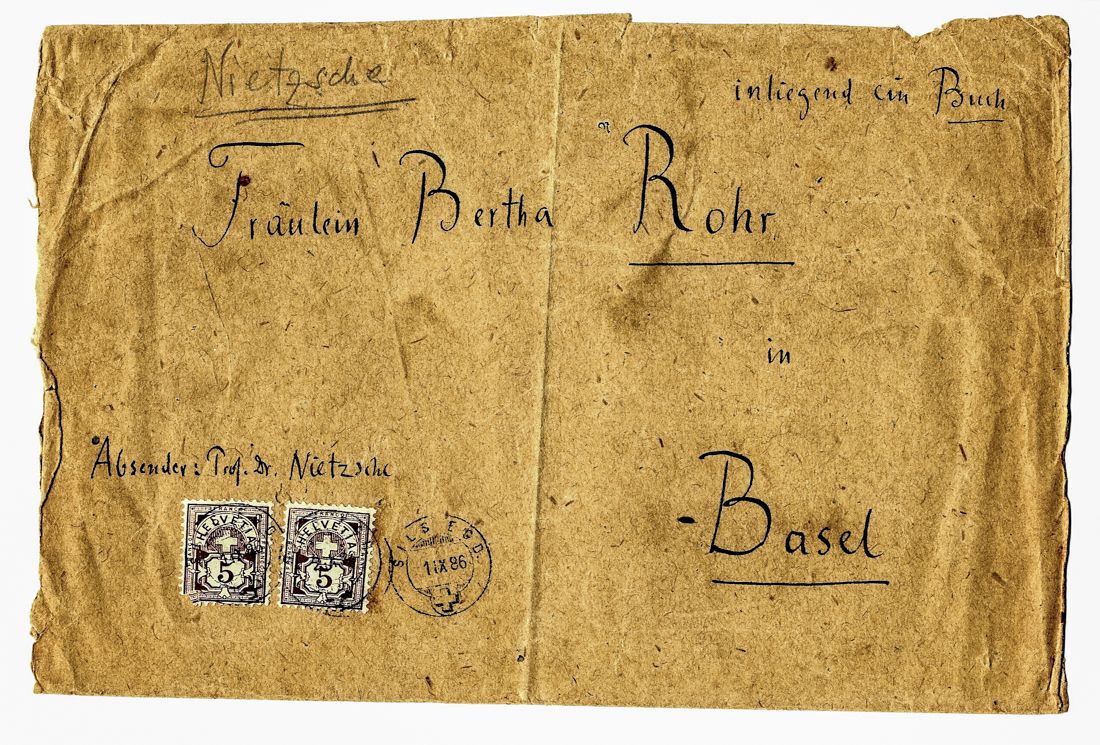 Nietzsche
inliegend ein Buch
Fräulein Bertha Rohr
in
Basel
Absender: Prof. Dr. Nietzsche
HELVETIA HELVETIA
5 5
SILS EGD.
1 IX 86